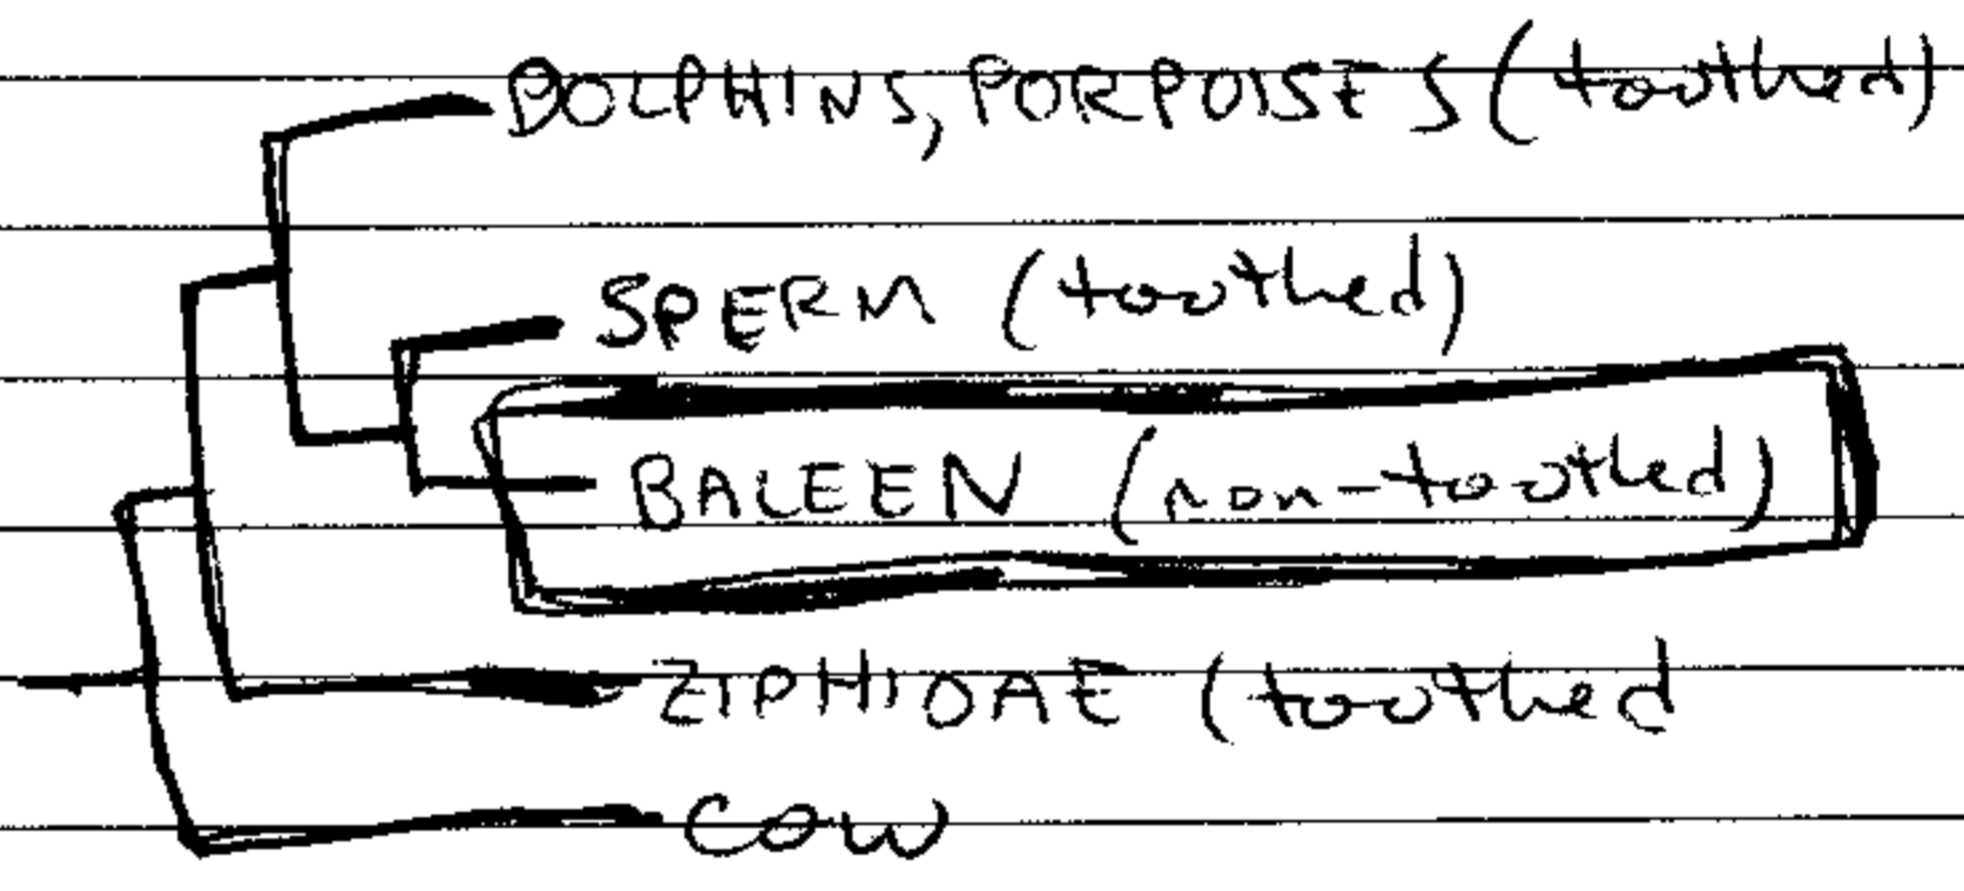 DOLPHINS, PORPOISES (toothed)
SPERM (toothed)
BALEEN (non-toothed)
ZIPHIDAE (toothed
COW